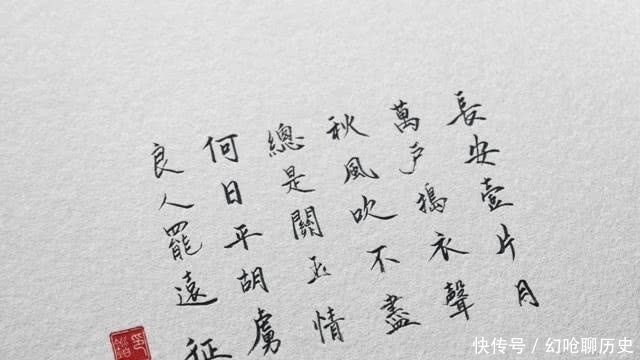 長安壹片月
萬户搗衣聲
秋風吹不盡
總是關玉情
何日平胡虜
良人罷遠征
快传号 / 幻呛聊历史